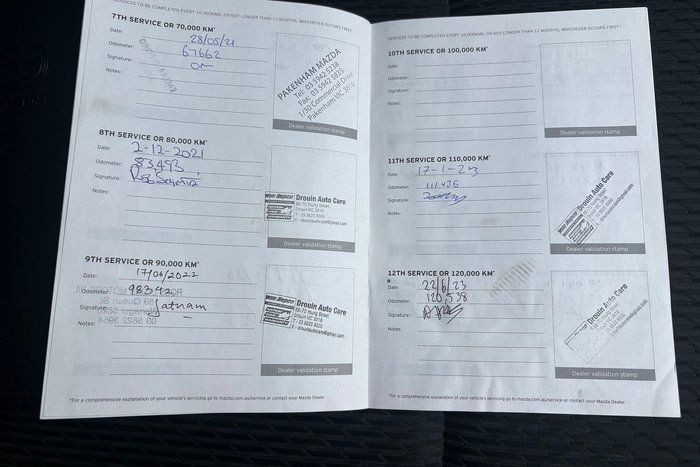 SERVICES TO BE COMPLETED EVERY 10,000KMS, OR NOT LONGER THAN 12 MONTHS, WHICHEVER OCCURS FIRST.
7TH SERVICE OR 70,000 KM*
Date: 28/05/21
Odometer: 67662
Signature:
Notes:
PAKENHAM MAZDA
Tel: 03 5942 5238
Fax: 03 5942 5835
1/30 Commercial Drive
Pakenham VIC 3810
Dealer validation stamp
8TH SERVICE OR 80,000 KM*
Date: 2-12-2021
Odometer: 83,493
Signature:
Notes:
Drouin Auto Care
66-70 Young Street
Drouin VIC 3818
T - 03 5625 9300
E - drouinautocare@gmail.com
Dealer validation stamp
9TH SERVICE OR 90,000 KM*
Date: 17/06/2022
Odometer: 98342
Signature: Satnam
Notes:
Drouin Auto Care
66-70 Young Street
Drouin VIC 3818
T - 03 5625 9300
E - drouinautocare@gmail.com
Dealer validation stamp
*For a comprehensive explanation of your vehicle's servicing go to mazda.com.au/service or contact your Mazda Dealer.
SERVICES TO BE COMPLETED EVERY 10,000KMS, OR NOT LONGER THAN 12 MONTHS, WHICHEVER OCCURS FIRST.
10TH SERVICE OR 100,000 KM*
Date:
Odometer:
Signature:
Notes:
Dealer validation stamp
11TH SERVICE OR 110,000 KM*
Date: 17-1-23
Odometer: 111426
Signature:
Notes:
Drouin Auto Care
66-70 Young Street
Drouin VIC 3818
Dealer validation stamp
12TH SERVICE OR 120,000 KM*
Date: 22/6/23
Odometer: 120,538
Signature:
Notes:
Drouin Auto Care
66-70 Young Street
Dealer validation stamp
*For a comprehensive explanation of your vehicle's servicing go to mazda.com.au/service or contact your Mazda Dealer.